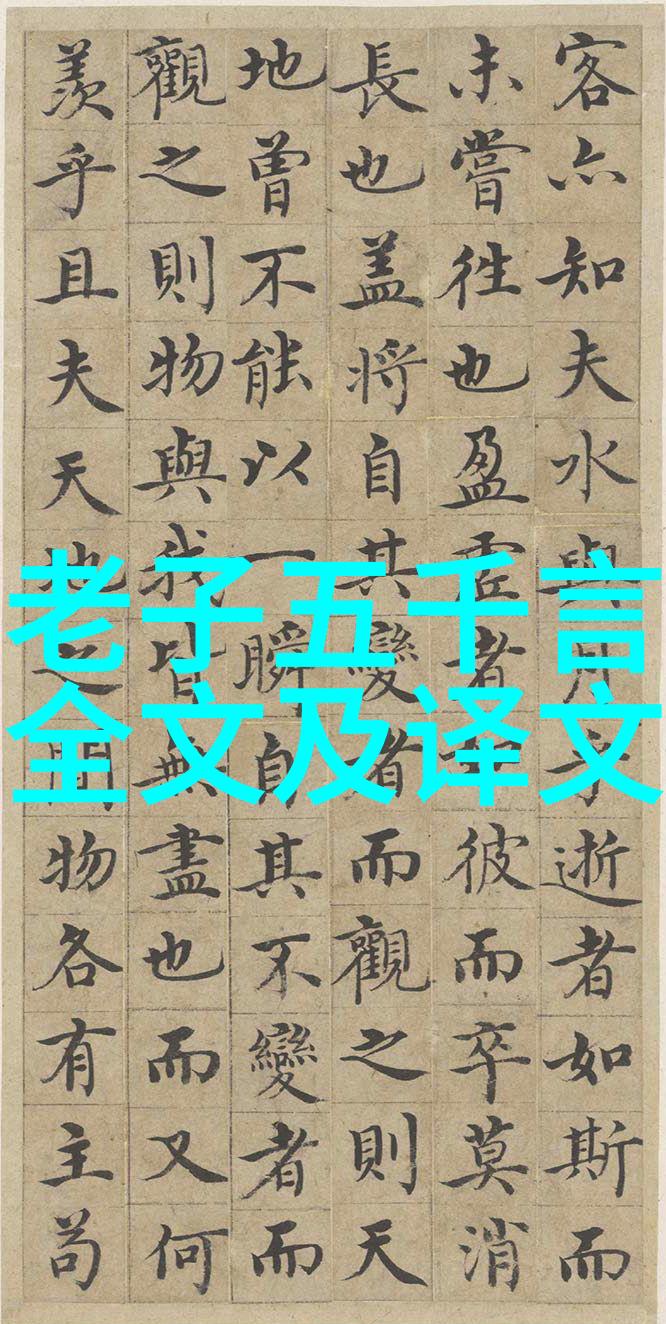 老子五千言
全文及译文
客亦知夫水與月乎逝者如斯而
未嘗往也盈虛者彼而卒莫消
長也盖將自其變者而觀之則天
地曾不能以一瞬自其不變者而
觀之則物與我皆無盡也而又何
羨乎且夫天地之間物各有主苟